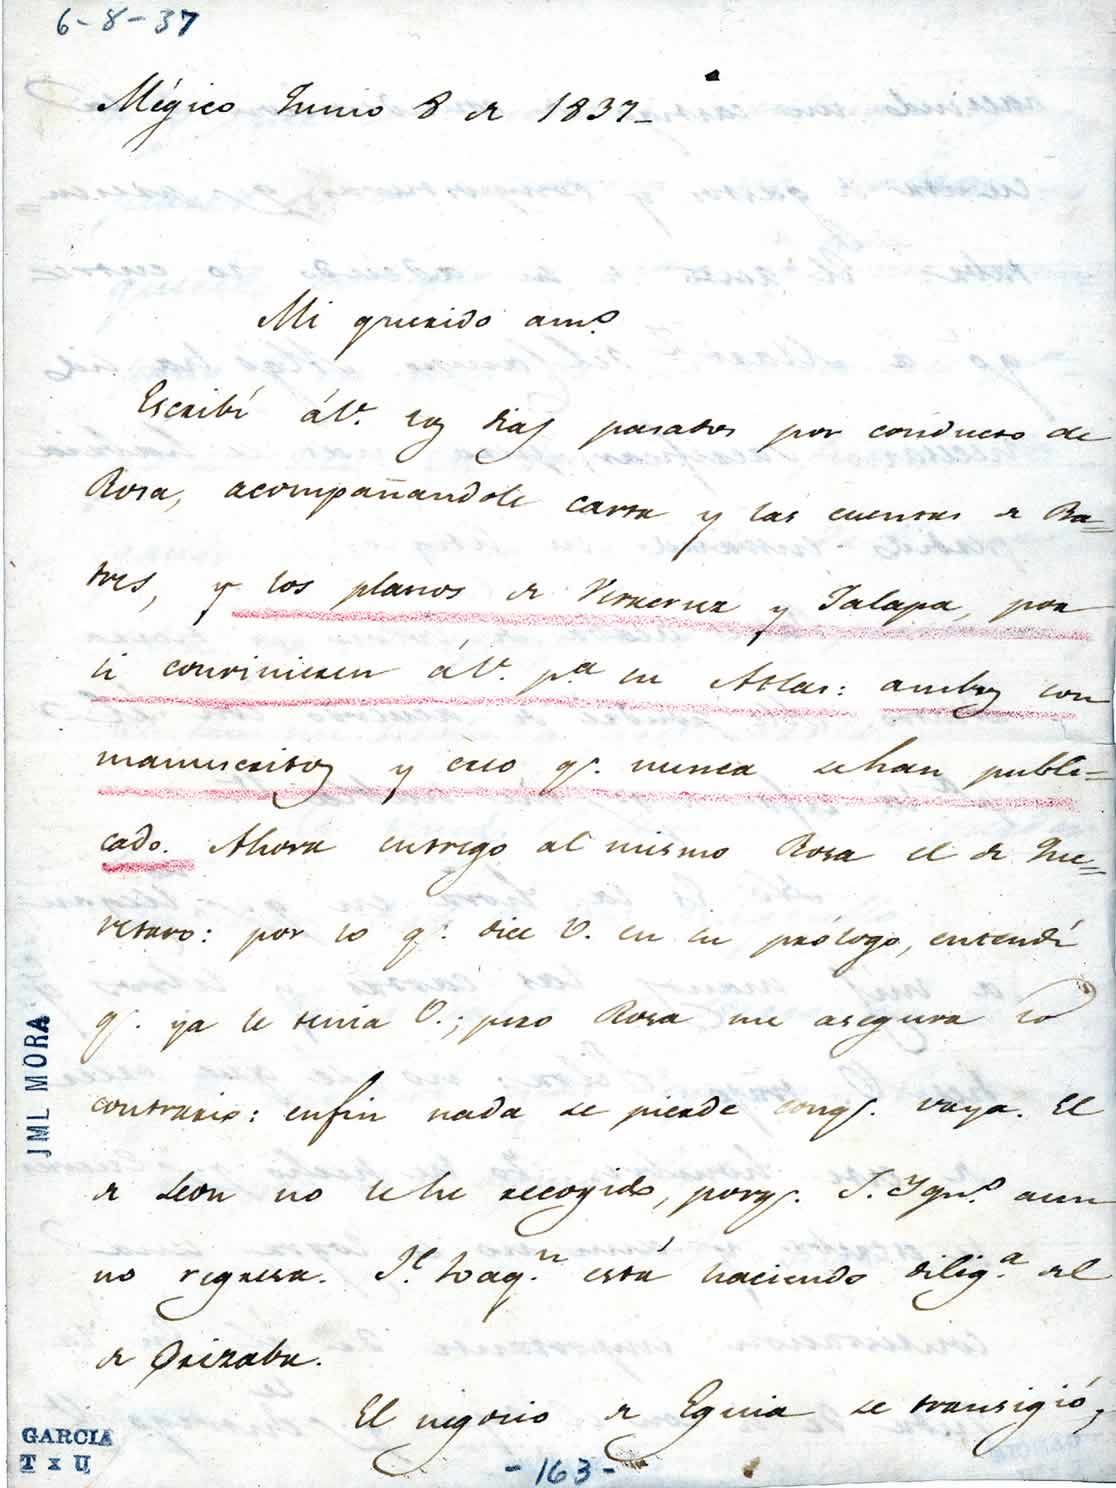 6-8-37
Mégico Junio 8 de 1837_
Mi querido amº
Escribí áVe. los dias pasados por conducto de
Rosa, acompañandole carta y las cuentas de Ba=
tres, y los planos de Veracruz y Jalapa, por
si conviniesen áVe. pa su Atlas: ambos son
manuscritos y creo, qe. nunca sehan publi=
cado. Ahora entrego al mismo Rosa el de Que=
retaro: por lo qe. dice V. en su prólogo, entendí
qe. ya le tenia V.; pero Rosa me asegura lo
contrario: enfin nada se pierde conqe. vaya. El
de Leon no lehe recogido, porqe. J. Ignº aun
no regresa. Je. Joaqn. está haciendo diliga. del
de Orizaba.
El negocio de Eguia se transigió,
JML MORA
GARCIA
T x U
-163-